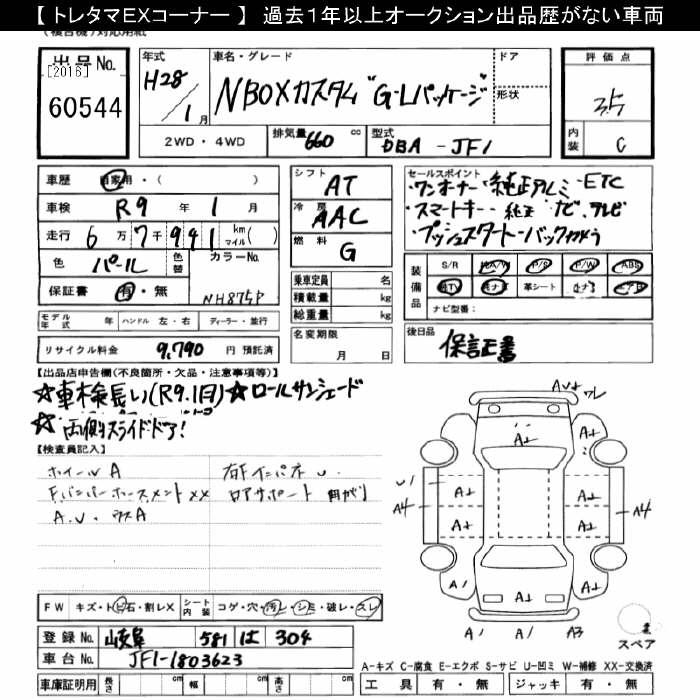 【 トレタマＥＸコーナー 】 過去１年以上オークション出品歴がない車両
出 品 No.
[2016]
60544
年式
H28
1月
車名・グレード
NBOXカスタム"G・Lパッケージ"
ドア
形状
評 価 点
3.5
内装
C
2WD ・ 4WD
排気量
660
cc
型式
DBA - JF1
車歴
自家用・(　　　)
車検
R9 年 1 月
走行
6万7千941 km マイル( )
色
パール
色替
カラーNo.
NH875P
保証書
有・無
シフト
AT
冷房
AAC
燃料
G
乗車定員
名
積載量
kg
総重量
kg
名変期限
月 日
セールスポイント
・ワンオーナー・純正アルミ・ETC
・スマートキー・純正ナビ、テレビ
・プッシュスタート・バックカメラ
装備品
S/R
P/S
P/W
ABS
革シート
ナビ型番：
モデル年式
年
ハンドル 左・右
ディーラー・並行
リサイクル料金
9,790
円 預託済
後日品
保証書
【出品店申告欄(不良箇所・欠品・注意事項等)】
☆車検長い(R9.1月)☆ロールサンシェード
☆両側スライドドア!
【検査員記入】
ホイールA
右F インパネ U
F.バンパーホースメント XX
ロアサポート 曲がり
A.U
A
FW
キズ・トビ石・割レX
シート内装
コゲ・穴・汚レ・シミ・破レ・スレ
登録 No.
岐阜 581 は 304
車台 No.
JF1-1803623
車庫証明用
長さ
cm
幅
cm
高さ
cm
A2
ワレ
A2
A2
U1
A4
A2
A2
A2
A2
A4
A1
A2
A2
A1
A1
A3
スペア
A-キズ C-腐食 E-エクボ S-サビ U-凹ミ W-補修 XX-交換済
工 具
有 ・ 無
ジャッキ
有 ・ 無